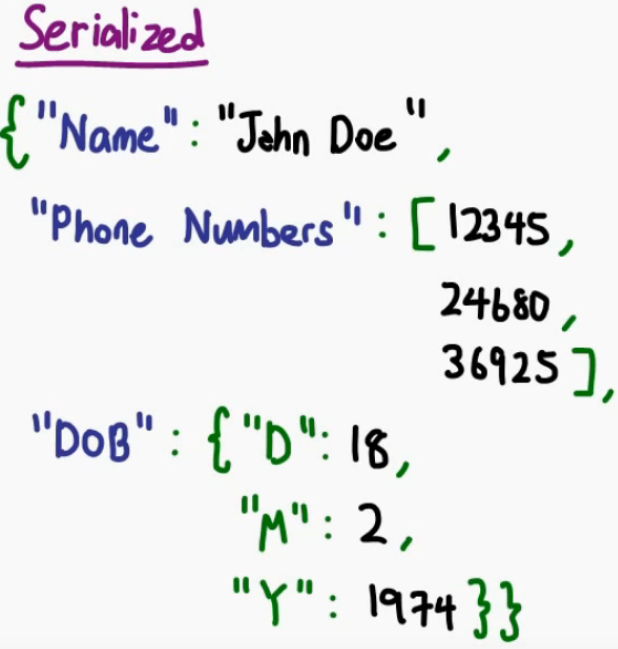 Serialized
{"Name": "John Doe",
"Phone Numbers": [12345,
24680,
36925],
"DOB": {"D": 18,
"M": 2,
"Y": 1974}}